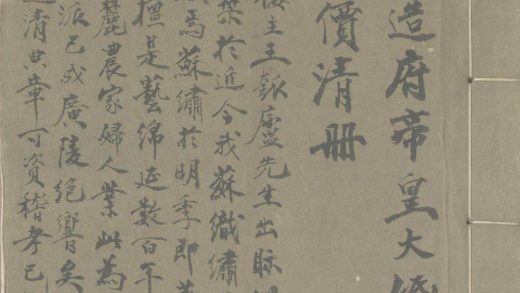 造府帝皇大婚
價清冊
樓主王瓠廬先生出眎
禁於近今我蘇織繡
焉蘇繡於明季即
擅是藝綿延數百年
麗農家婦人業此為
派已成廣陵絕響矣
清典章可資稽考已